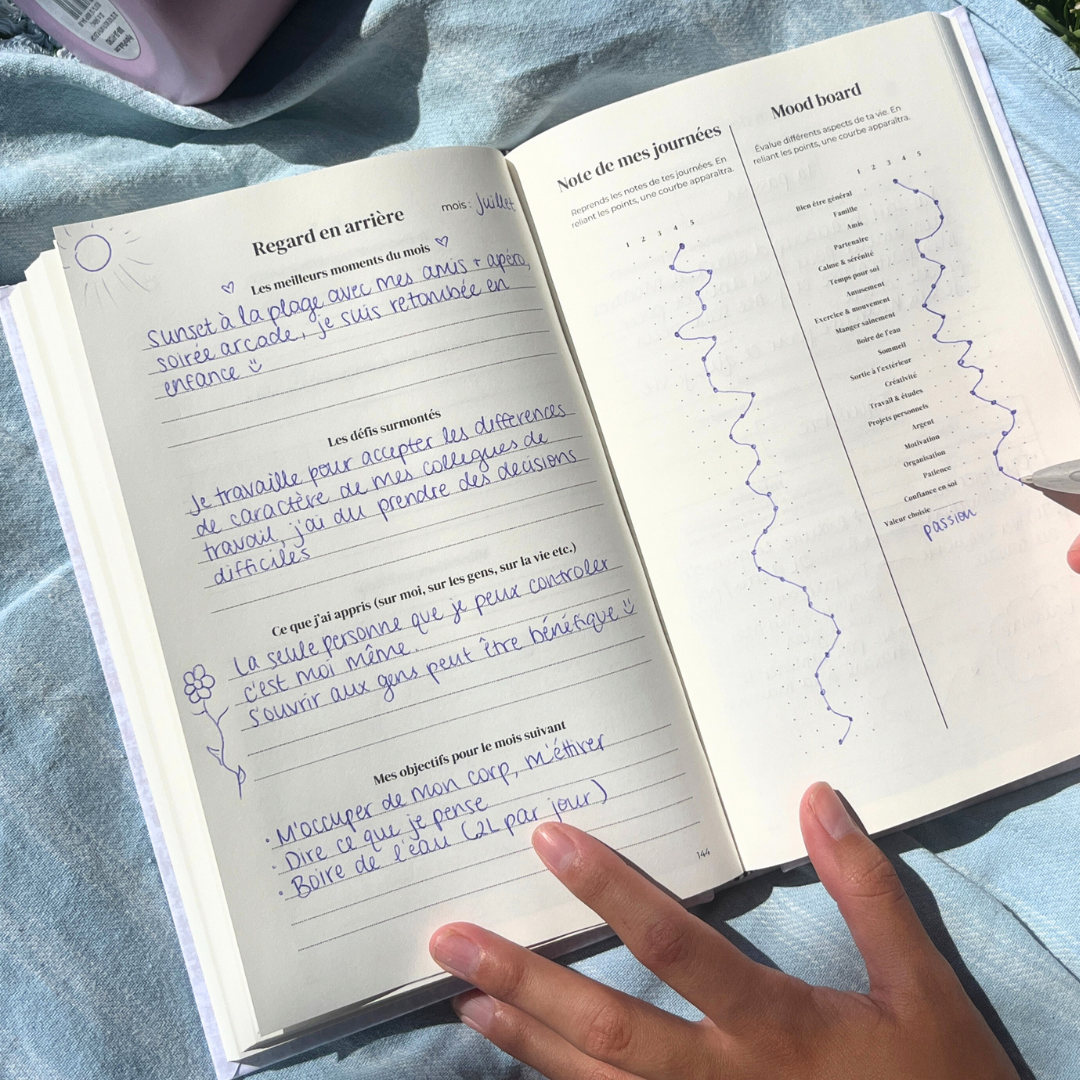 Regard en arrière
mois : Juillet
Les meilleurs moments du mois
Sunset à la plage avec mes amis + apéro,
soirée arcade, je suis retombée en
enfance
Les défis surmontés
Je travaille pour accepter les différences
de caractère de mes collègues de
travail, j'ai du prendre des décisions
difficiles
Ce que j'ai appris (sur moi, sur les gens, sur la vie etc.)
La seule personne que je peux controler
c'est moi même.
S'ouvrir aux gens peut être bénéfique
Mes objectifs pour le mois suivant
• M'occuper de mon corp, m'éttirer
• Dire ce que je pense
• Boire de l'eau (2L par jour)
144
Note de mes journées
Reprends les notes de tes journées. En
reliant les points, une courbe apparaîtra.
1 2 3 4 5
Mood board
Évalue différents aspects de ta vie. En
reliant les points, une courbe apparaîtra.
1 2 3 4 5
Bien être général
Famille
Amis
Partenaire
Calme & sérénité
Temps pour soi
Amusement
Exercice & mouvement
Manger sainement
Boire de l'eau
Sommeil
Sortie à l'extérieur
Créativité
Travail & études
Projets personnels
Argent
Motivation
Organisation
Patience
Confiance en soi
Valeur choisie
passion